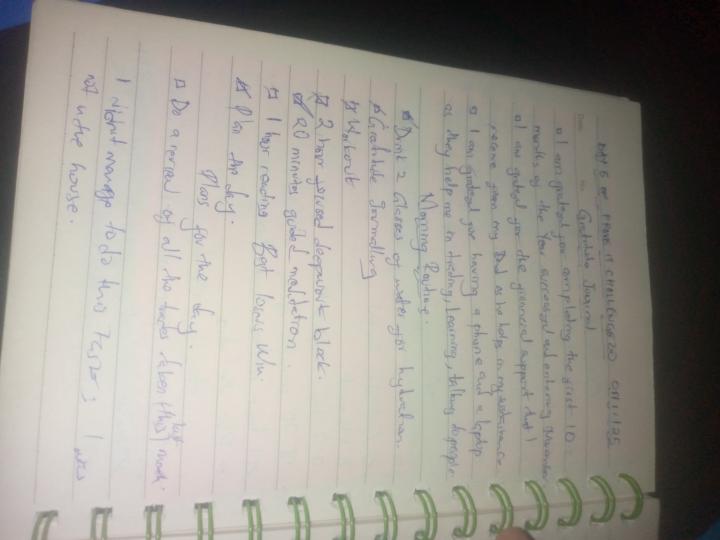 DAY 5 OF PHASE 17 CHALLENGE 20 01/11/25
Gratitude Journal
Date:
I am grateful for completing the first 10
months of the Year successful and entering November
I am grateful for the financial support that I
receive from my Dad as he helps in my sustenance
I am grateful for having a phone and a laptop
as they help me in trading, learning, talking to people
Morning Routine.
Drink 2 Glasses of water for hydration.
Gratitude Journaling
Workout
2 hour focused deepwork block.
20 minutes guided meditation.
1 hour reading Best Loser Win.
Plan the day.
Plans for the day.
Do a review of all the trades taken (this) last month.
I didnt manage to do this task as I was
not in the house.